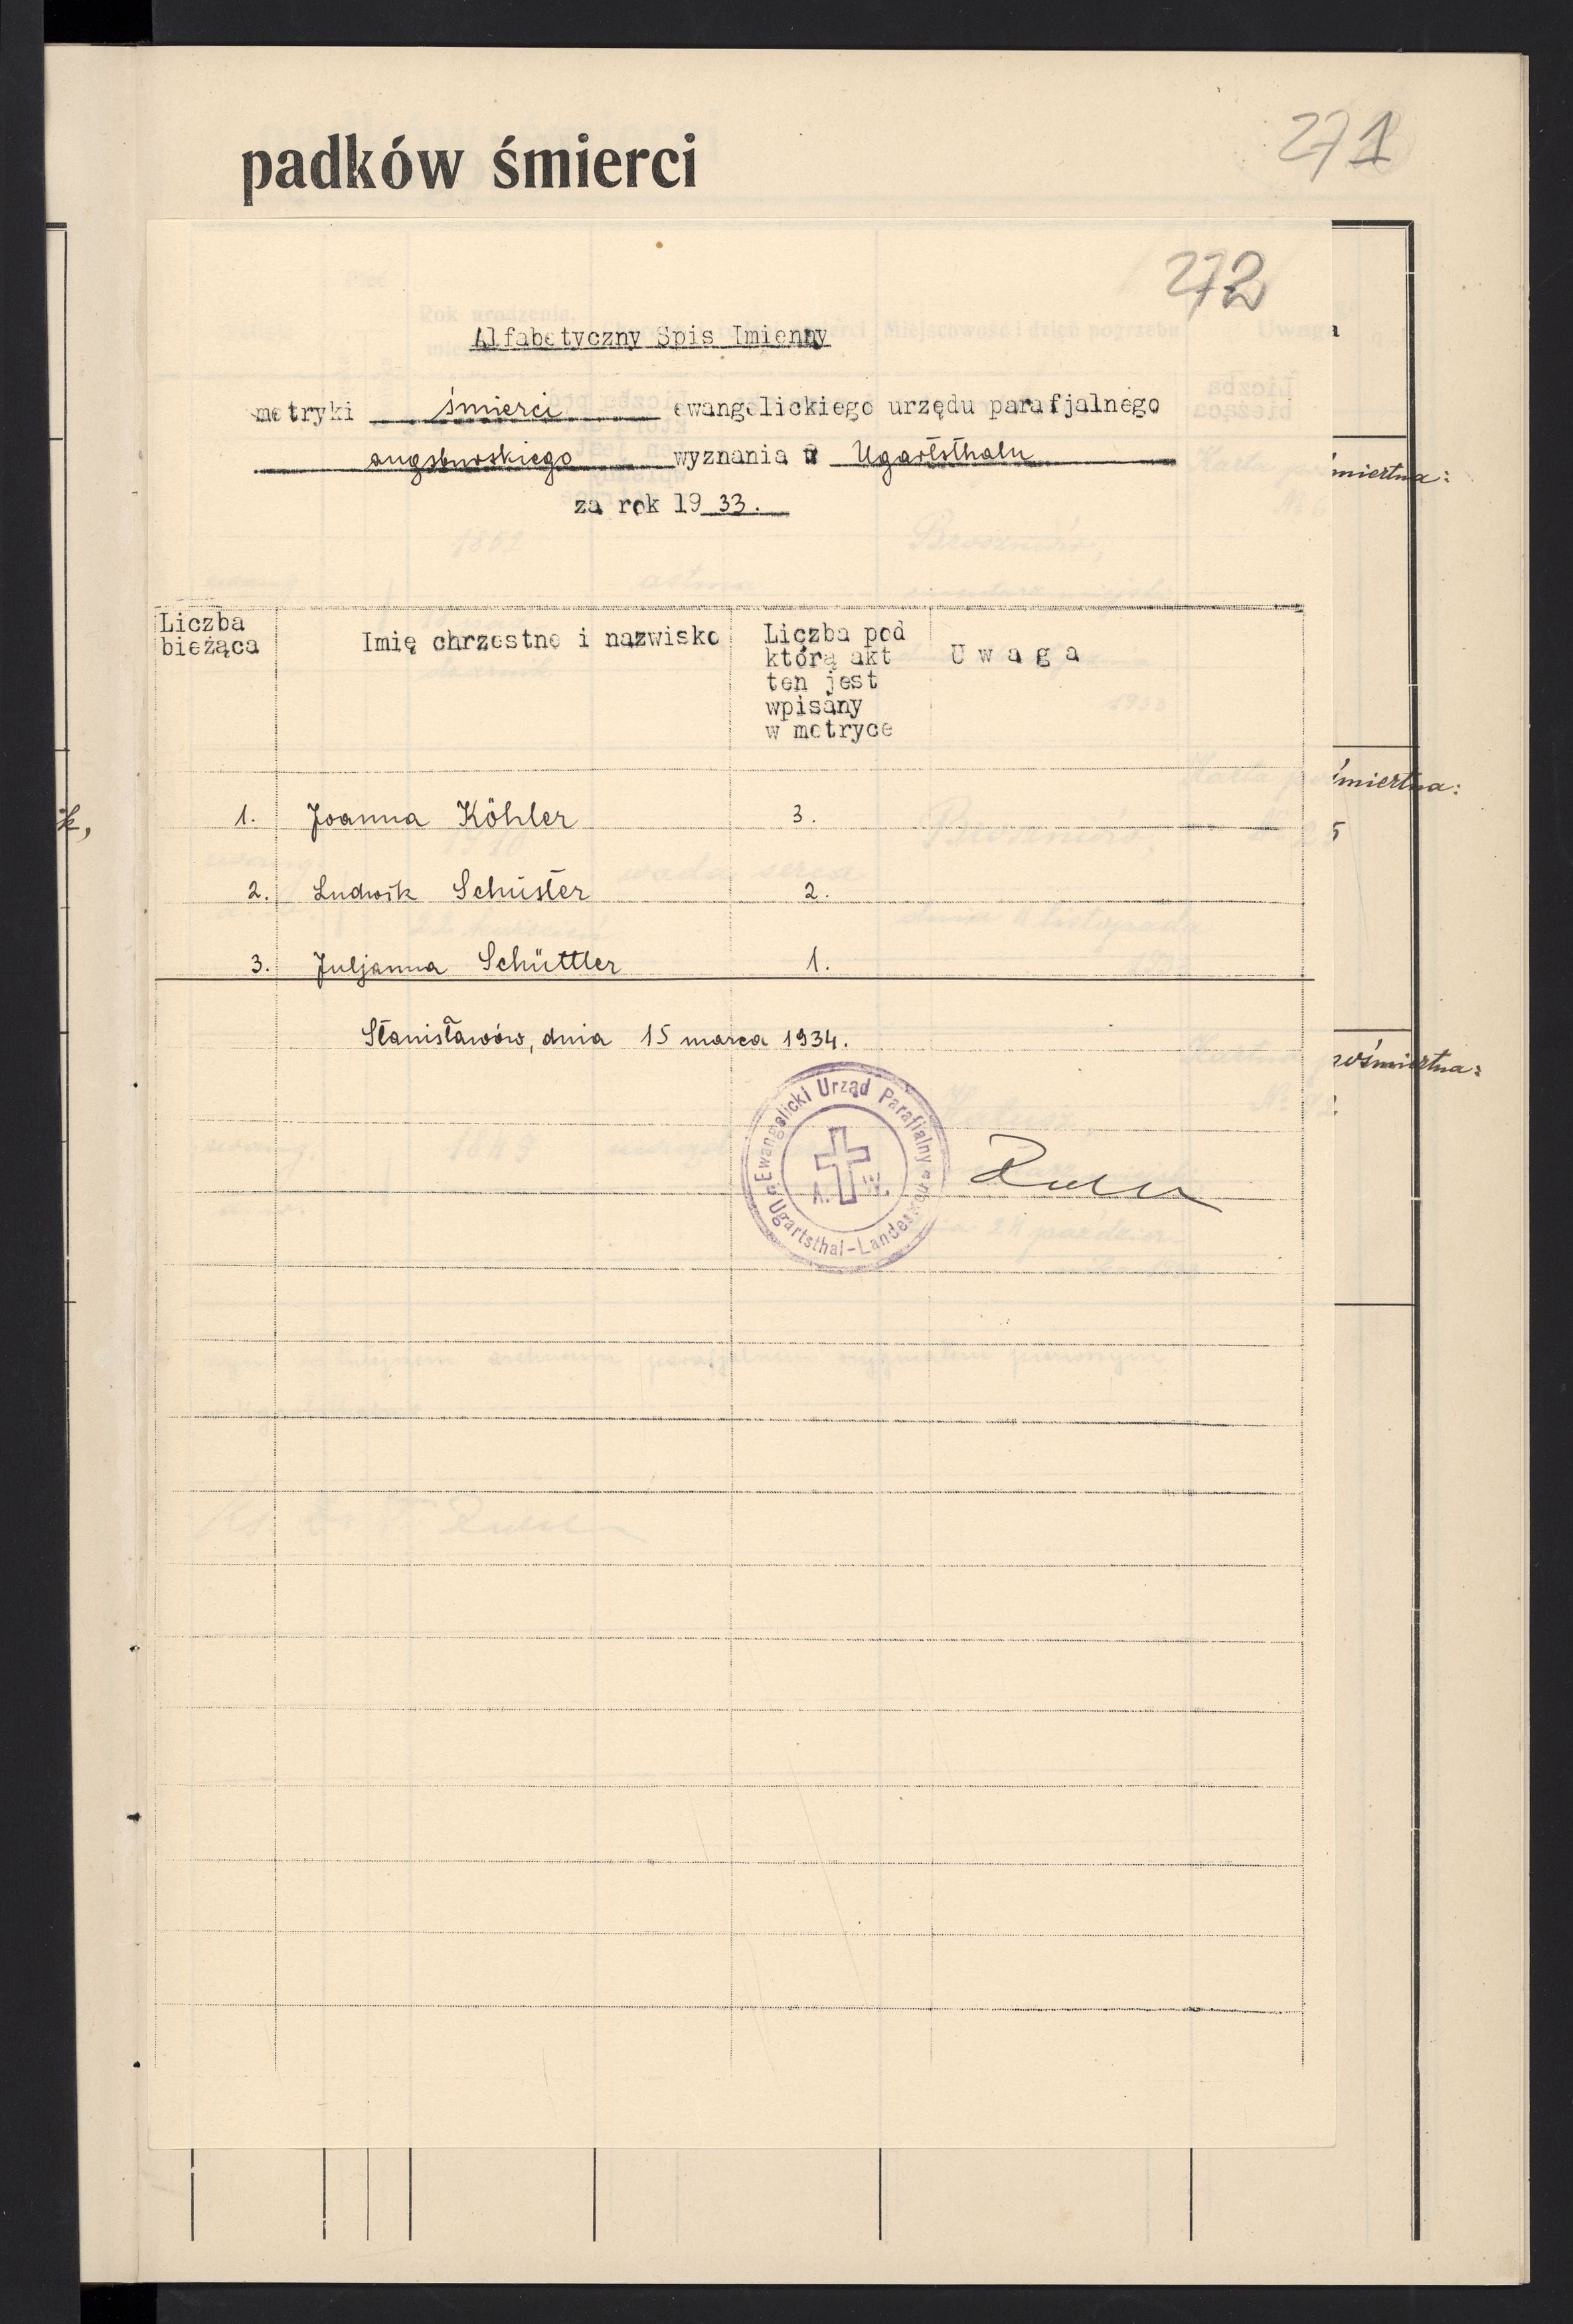 padków śmierci
271
272
Alfabetyczny Spis Imienny
metryki śmierci ewangelickiego urzędu parafjalnego
augsburskiego wyznania w Ugartsthalu
za rok 1933.
Liczba bieżąca
Imię chrzestne i nazwisko
Liczba pod którą akt ten jest wpisany w metryce
Uwaga
1. Joanna Köhler 3.
2. Ludwik Schuster 2.
3. Juljanna Schüttler 1.
Stanisławów, dnia 15 marca 1934.
Ewangelicki Urząd Parafialny
Ugartsthal-Landestreu
A. W.
śmiertna:
śmiertna:
5
pośmiertna: